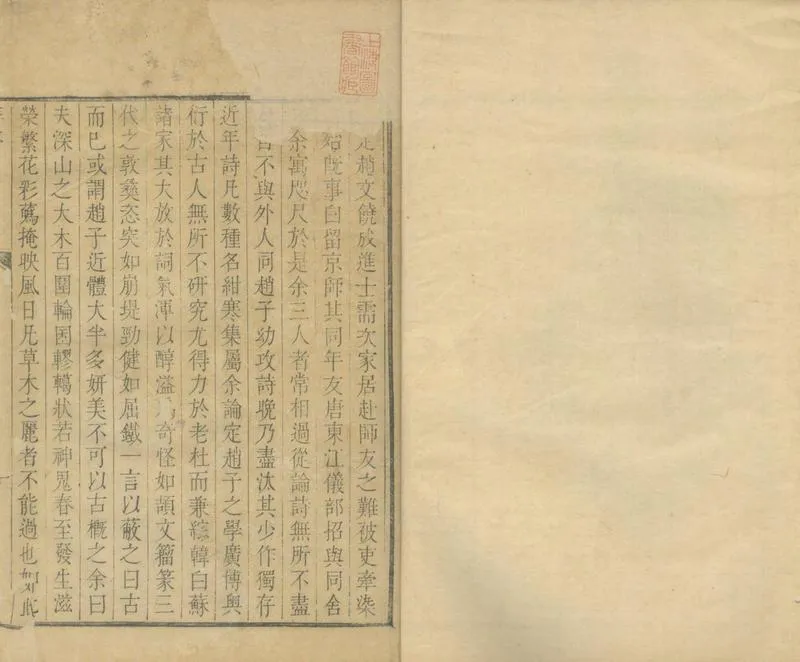 上海圖
書館藏
趙文饒成進士需次家居赴師友之難被吏牽染
既事白留京師其同年友唐東江儀部招與同舍
余寓咫尺於是余三人者常相過從論詩無所不盡
不與外人同趙子幼攻詩晚乃盡汰其少作獨存
近年詩凡數種名紺寒集屬余論定趙子之學廣博與
衍於古人無所不研究尤得力於老杜而兼綜韓白蘇
諸家其大放於詞氣渾以醇溢為奇怪如頡文籀篆三
代之敦彝恣突如崩堤勁健如屈鐵一言以蔽之曰古
而已或謂趙子近體大半多妍美不可以古概之余曰
夫深山之大木百圍輪囷轇轕狀若神鬼春至發生滋
榮繁花彩蔦掩映風日凡草木之麗者不能過也如此